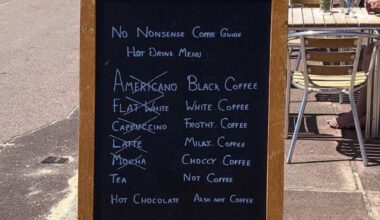 No Nonsense Coffee Guide
Hot Drink Menu
Americano Black Coffee
Flat White White Coffee
Cappuccino Frothy. Coffee
Latte Milky. Coffee
Mocha Choccy Coffee
Tea Not Coffee
Hot Chocolate Also not Coffee